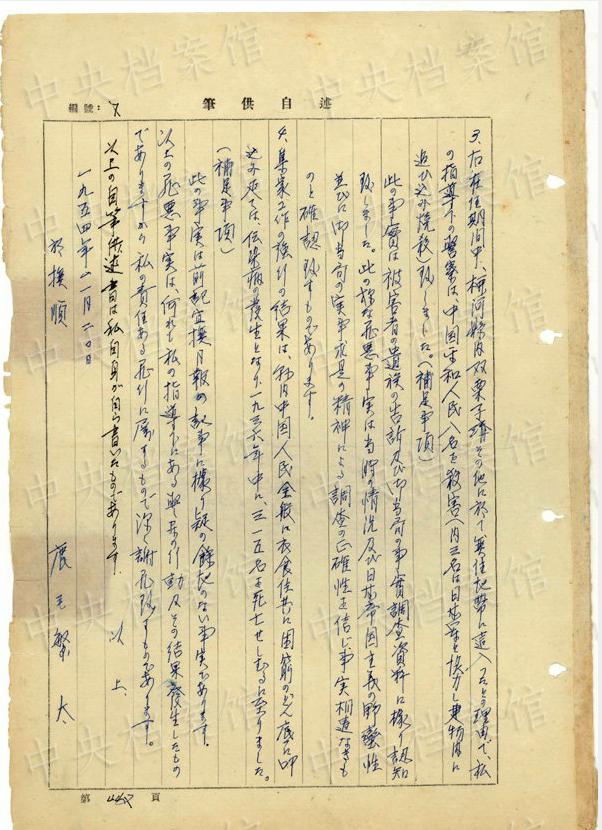 編號：
述自供筆
3、右在任期間中、柳河縣内双栗子溝その他に於て無住地帯に這入ったとの理由で、私
の指導下の警察は、中国平和人民八名を殺害（内三名は日本軍と協力 建物内に
追ひ込み焼殺）致しました。（補足事項）
此の事實は被害者の遺族の告訴及び当局の事實調査資料に據り認知
致しました。此の様な罪悪事実は当時の情況及び日本帝国主義の野蠻性
並びに御当局の実事求是の精神による調査の正確性を信じ事実相違なきも
のと確認致すものであります。
4、集家工作の強行の結果は、縣内中国人民全般に衣食住共に困窮のどん底に叩
込み 伝染病の發生となり、一九三六年中に三一五名を死亡せしむるに至りました。
（補足事項）
此の事実は前記宣撫月報の記事に據り疑の餘地のない事実であります。
以上の罪悪事実は何れも私の指導下にある 行動及その結果發生したもの
でありますから私の責任ある罪行に属するもので深く謝罪致すものであります。
以上の自筆供述書は私自身が自ら書いたものであります。
以上、
一九五四年 月二〇日
於撫順
鹿毛繁太
第 頁
中央档案馆